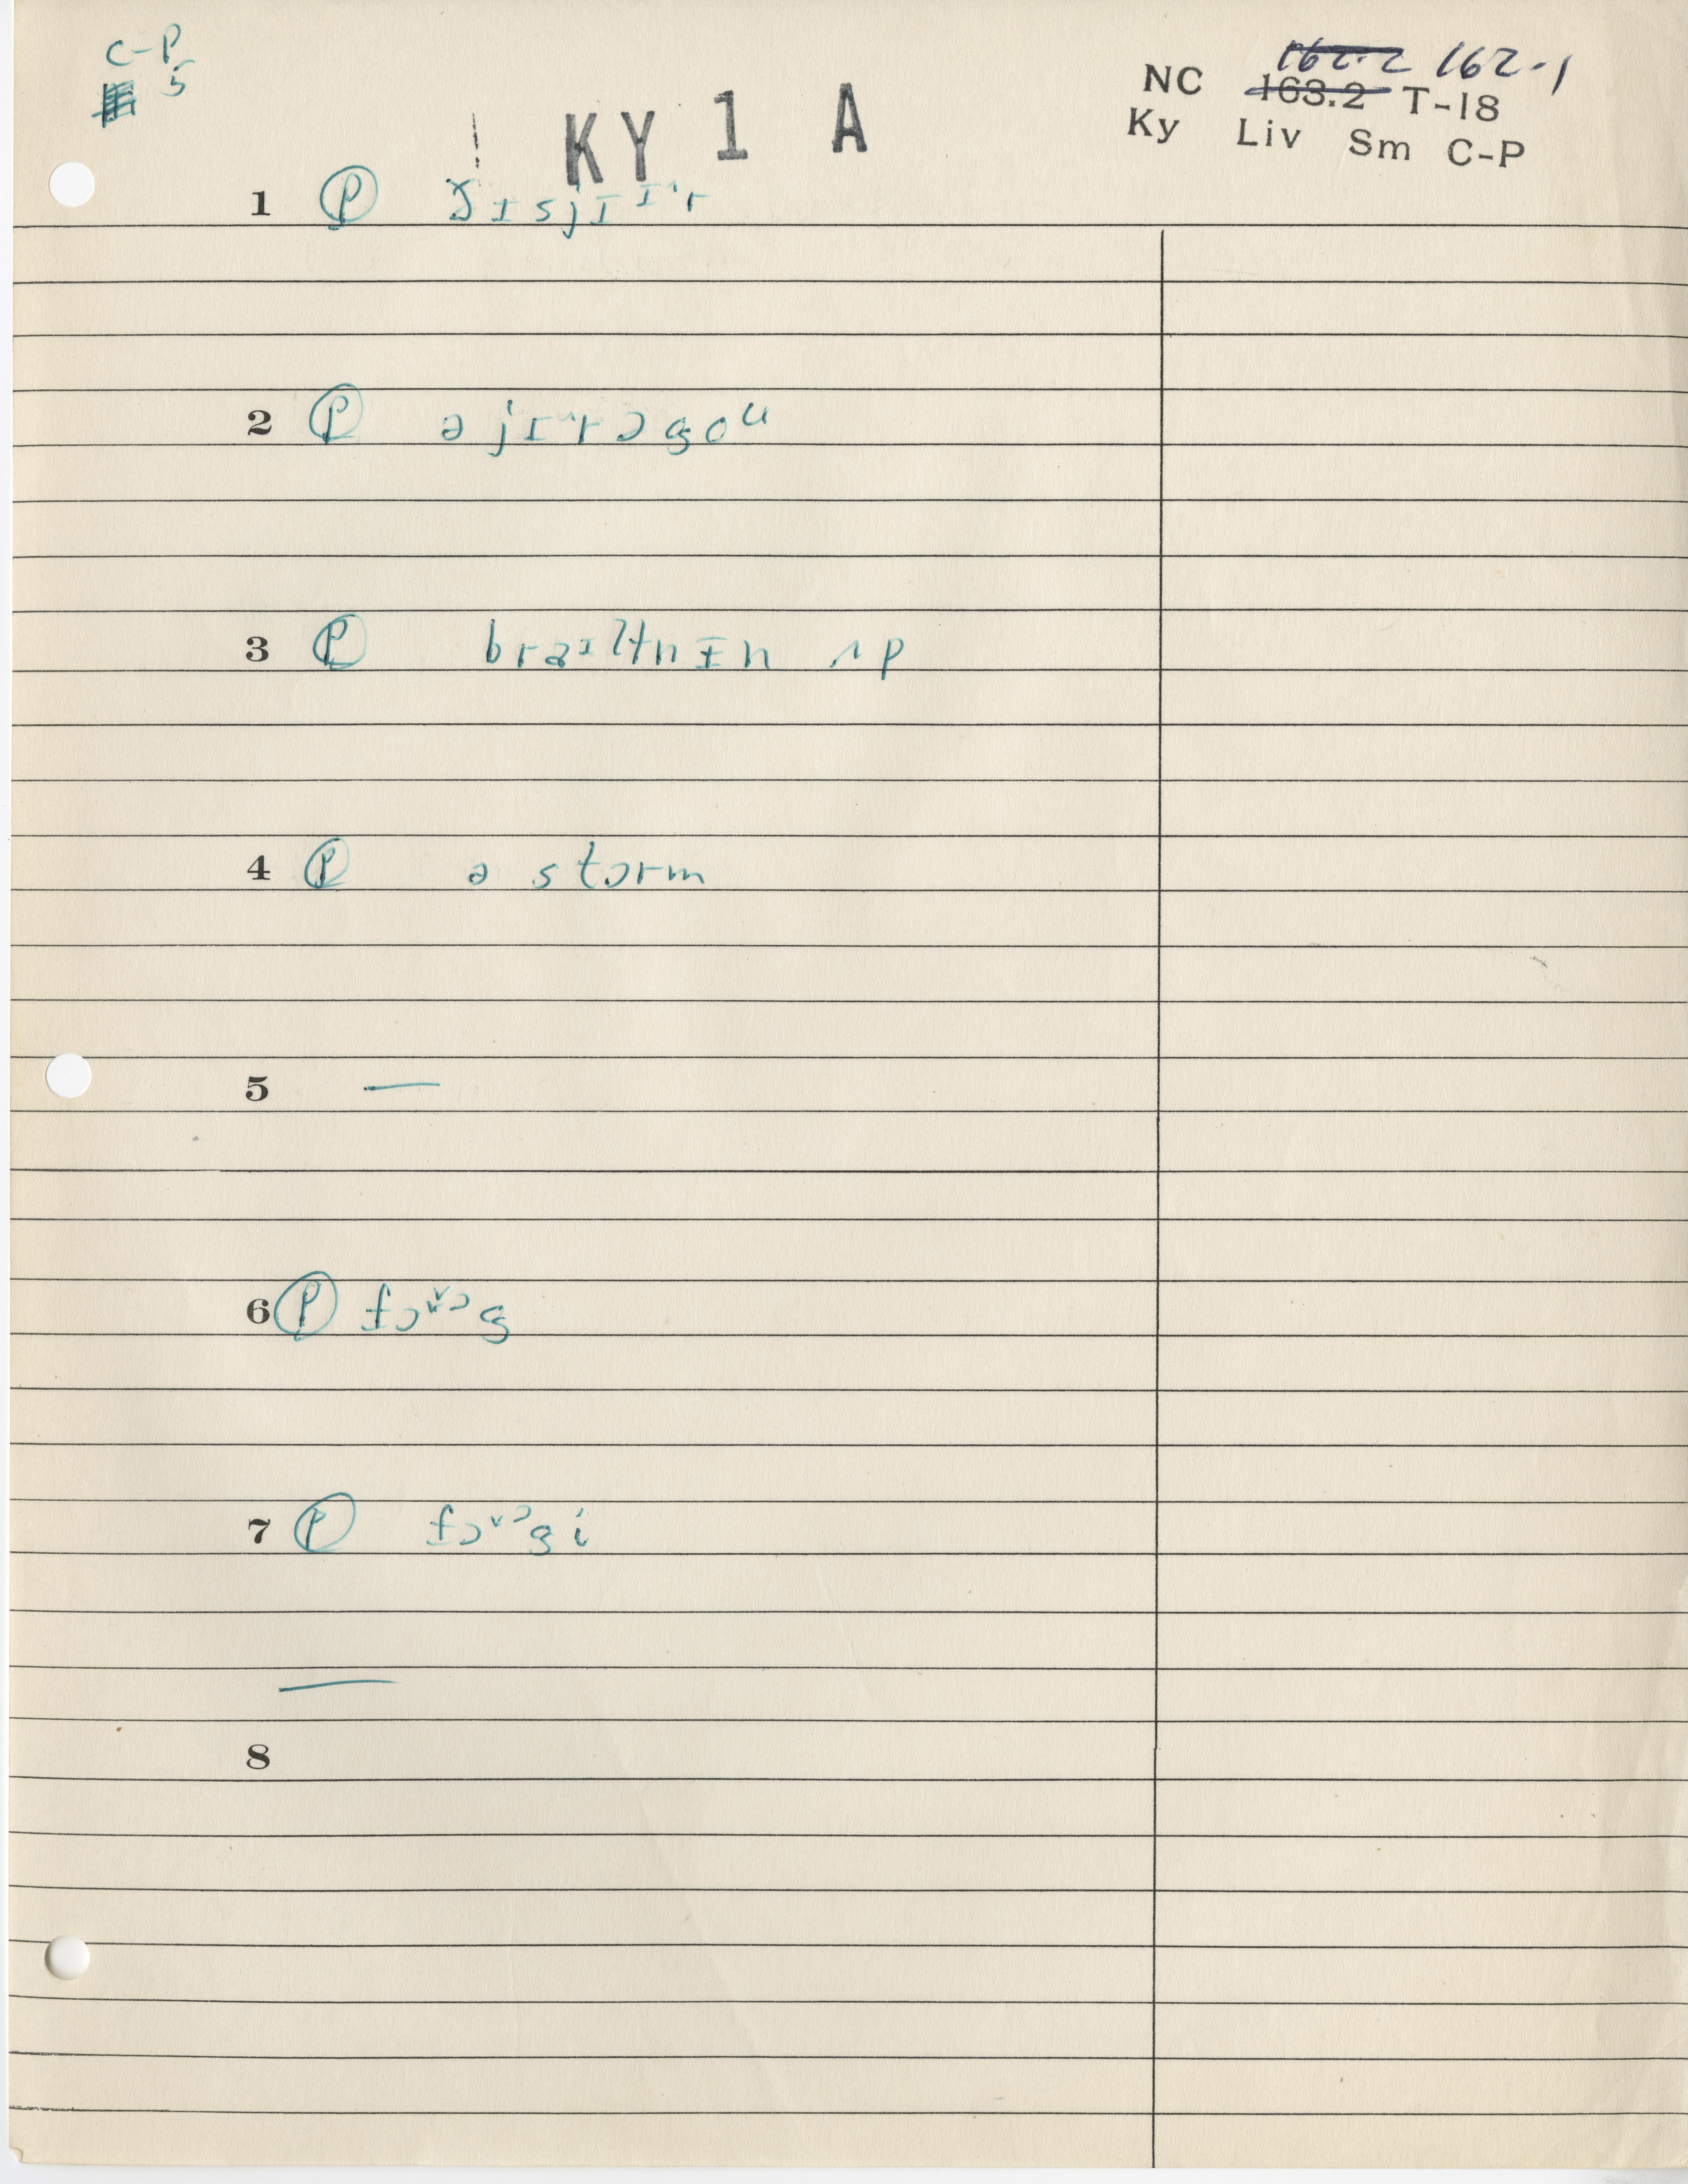 C-P
5
162.2 162-1
NC 163.2 T-18
Ky Liv Sm C-P
KY 1 A
1 Ⓟ ðɪsjɪɪ^r
2 Ⓟ ə jɪ^r əgoʊ
3 Ⓟ braɪtnɪn ʌp
4 Ⓟ ə stɔrm
5 —
6 Ⓟ fɔᵛɔg
7 Ⓟ fɔᵛɔgi
—
8